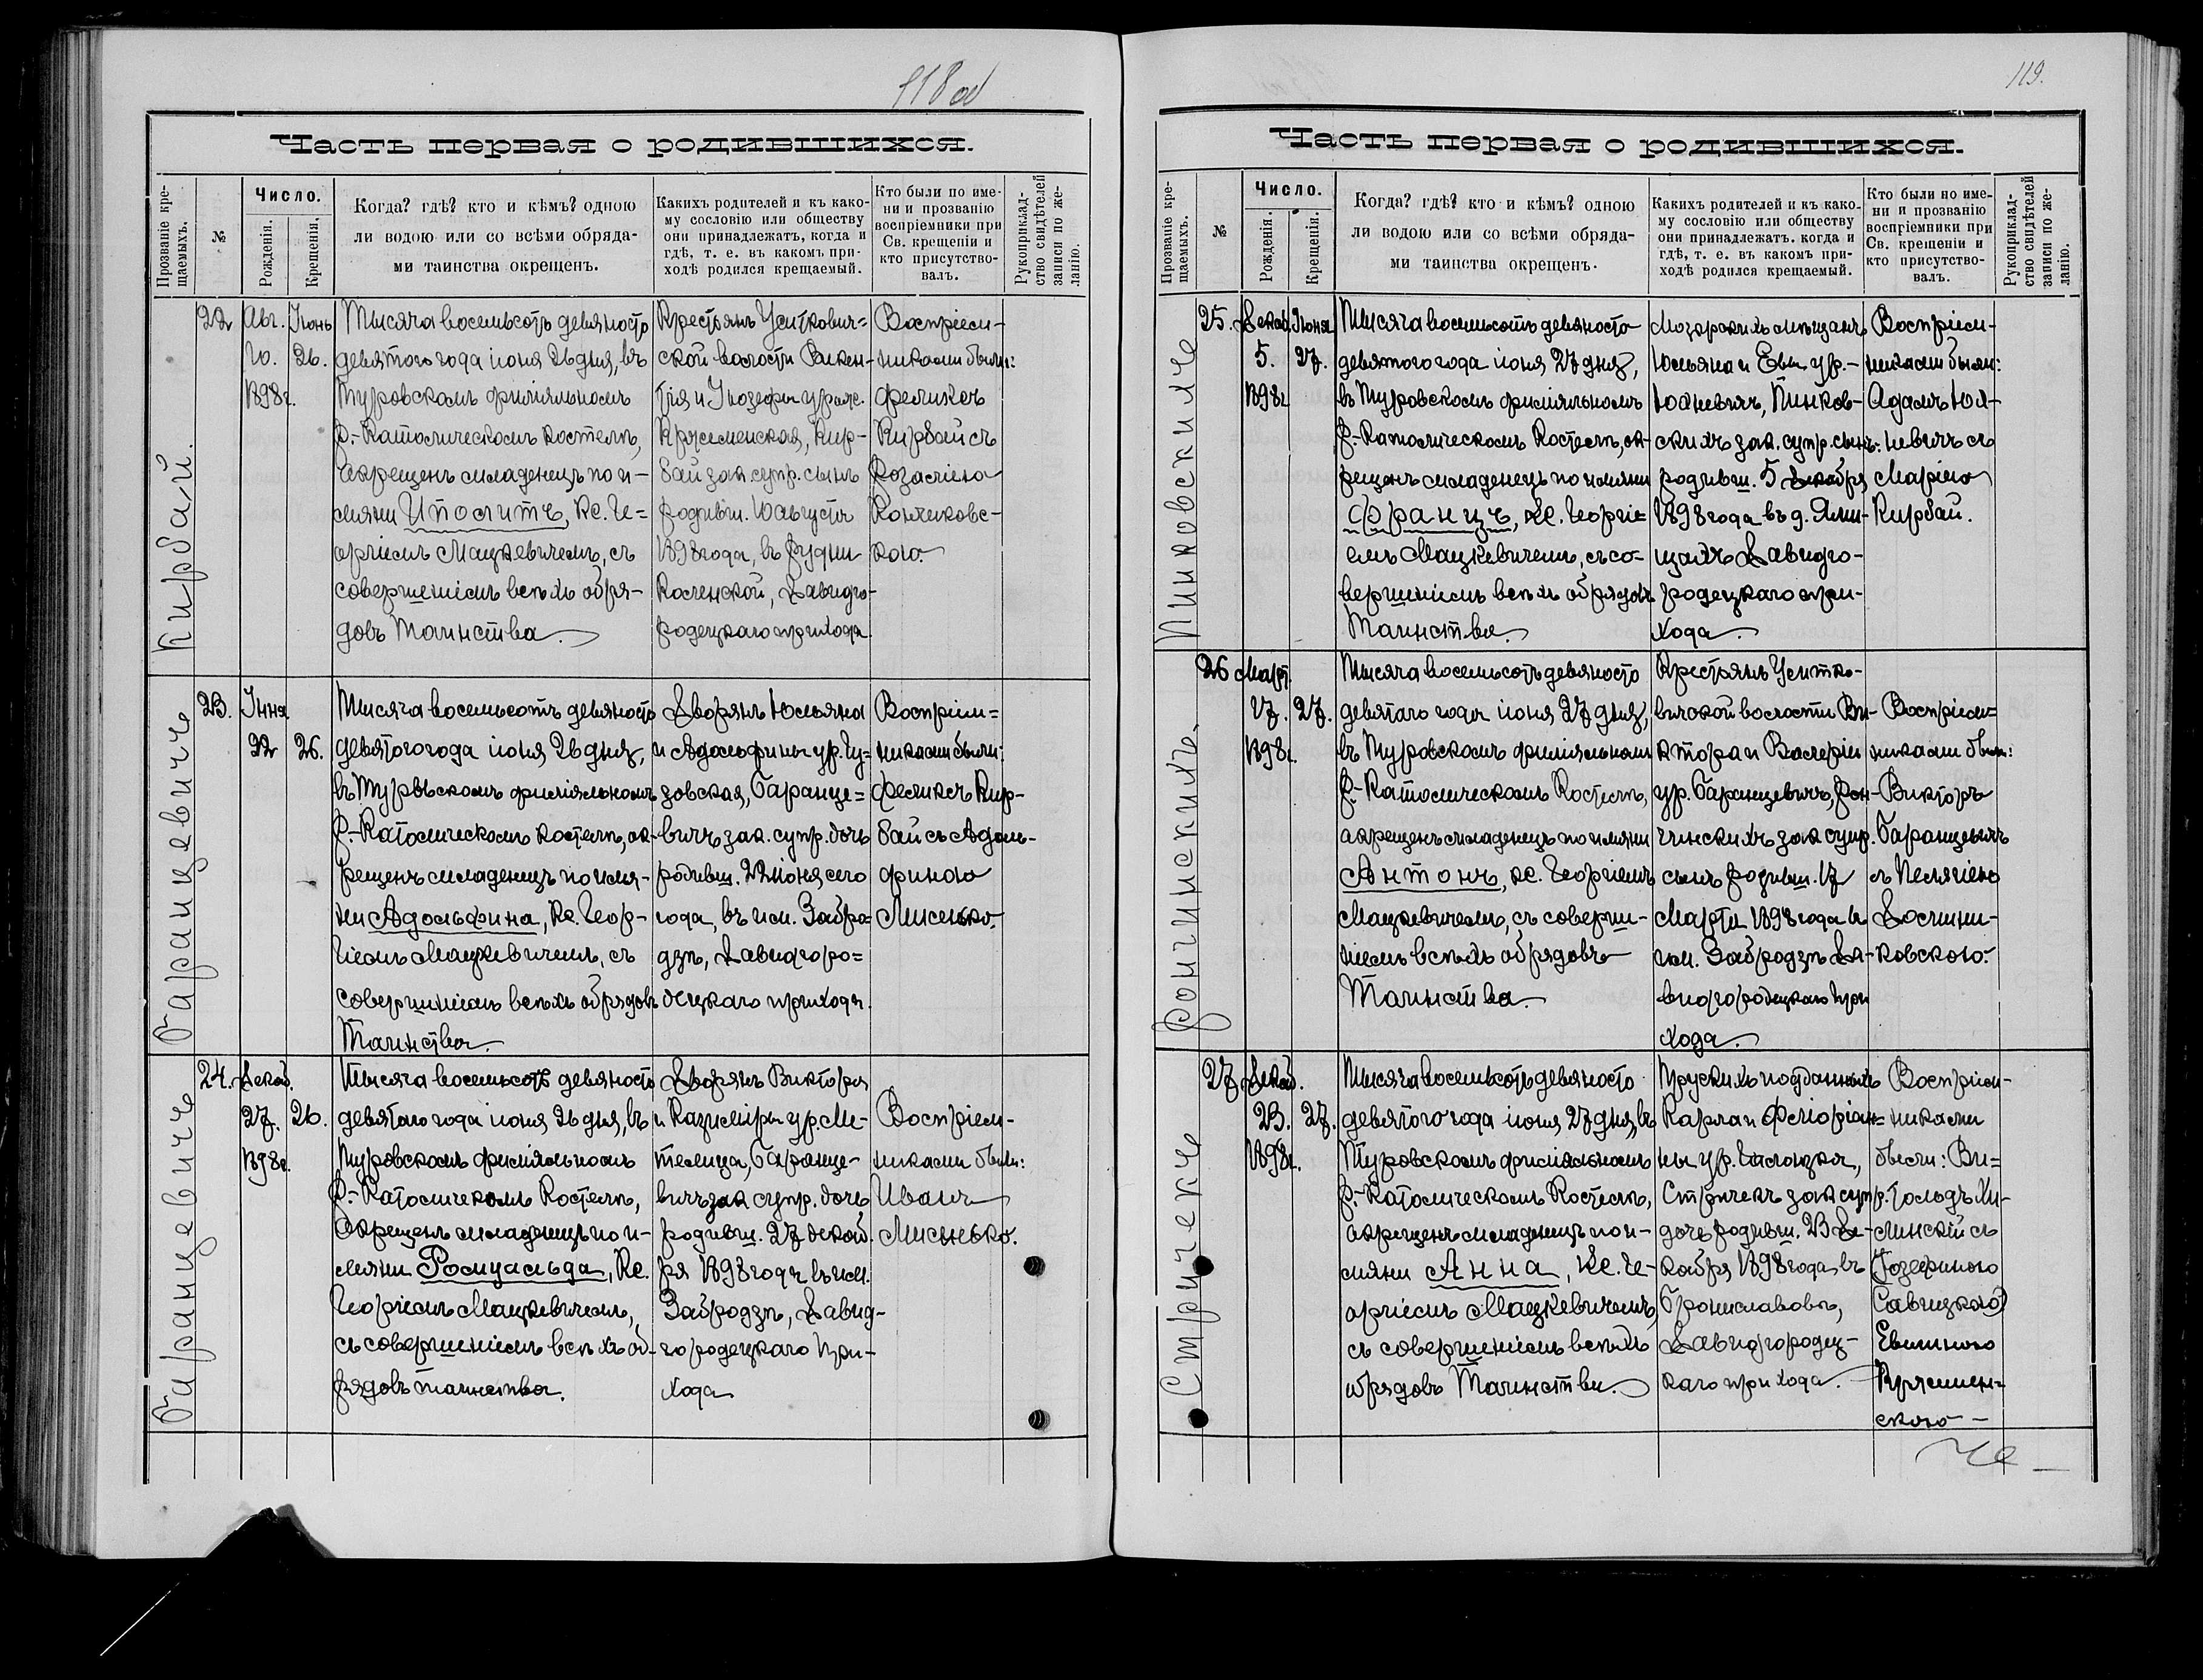 118 об
Часть первая о родившихся.
Прозваніе кре-
щаемыхъ.
№
Число.
Рожденія.
Крещенія.
Когда? гдѣ? кто и кѣмъ? одною
ли водою или со всѣми обряда-
ми таинства окрещенъ.
Какихъ родителей и къ како-
му сословію или обществу
они принадлежатъ, когда и
гдѣ, т. е. въ какомъ при-
ходѣ родился крещаемый.
Кто были по име-
ни и прозванію
воспріемники при
Св. крещеніи и
кто присутство-
валъ.
Рукоприклад-
ство свидѣтелей
записи по же-
ланію.
Кирбай.
22
Авг.
10.
1898г.
Іюнь
26.
Тысяча восемьсотъ девяносто
девятого года іюня 26 дня, въ
Туровскомъ филіяльномъ
Р.-Католическомъ костелѣ,
окрещенъ младенецъ по и-
мяни Иполитъ, Кс. Ге=
оргіемъ Мацкевичемъ, съ
совершеніемъ всѣхъ обря-
довъ Таинства.
Крестьянъ
ской волости Викен-
тія и Іюзефы урож.
Кржеменская, Кир-
бай зак. супр. сынъ
родивш. 10 августа
1898 года, въ Рудни
Давидго-
родецкаго прихода.
Воспріем-
никами были:
Феликсъ
Кирбай съ
Розаліею
Кончиковс-
кою.
Баранцевичъ
23.
Іюня
22
26.
Тысяча восемьсотъ девяносто
девятого года іюня 26 дня,
въ Туровскомъ филіяльномъ
Р.-Католическомъ костелѣ, ок-
рещенъ младенецъ по имя-
ни Адольфина, Кс. Геор-
гіемъ Мацкевичемъ, съ
совершеніемъ всѣхъ обрядовъ
Таинства.
Дворянъ Юльяна
и Адольфины ур. Гу-
зовская, Баранце=
вичъ зак. супр. дочь
родивш. 22 іюня сего
года, въ им. Забро-
дзѣ, Давидгоро=
децкаго прихода.
Воспріем=
никами были:
Феликсъ Кир-
бай съ Адоль-
финою
Лисенько.
Баранцевичъ
24.
Декаб.
27.
1898г.
26.
Тысяча восемьсотъ девяносто
девятаго года іюня 26 дня, въ
Туровскомъ филіяльномъ
Р.-Католическомъ Костелѣ,
окрещенъ младенецъ по и-
мяни Ромуальда, Кс.
Георгіемъ Мацкевичемъ,
съ совершеніемъ всѣхъ об-
рядовъ таинства.
Дворянъ Виктора
и Казиміры ур. Ме-
телица, Баранце-
вичъ зак супр. дочь
родивш. 27 декаб.
ря 1898 года въ им.
Забродзѣ, Давид-
городецкаго при-
хода
Воспріем-
никами были:
Иванъ
Лисенько.
119.
Часть первая о родившихся.
Прозваніе кре-
щаемыхъ.
№
Число.
Рожденія.
Крещенія.
Когда? гдѣ? кто и кѣмъ? одною
ли водою или со всѣми обряда-
ми таинства окрещенъ.
Какихъ родителей и къ како-
му сословію или обществу
они принадлежатъ. когда и
гдѣ, т. е. въ какомъ при-
ходѣ родился крещаемый.
Кто были по име-
ни и прозванію
воспріемники при
Св. крещеніи и
кто присутство-
валъ.
Рукоприклад-
ство свидѣтелей
записи по же-
ланію.
Пинковскихъ
25.
Декаб.
5.
1898г
Іюня
27.
Тысяча восемьсотъ девяносто
девятого года іюня 27 дня,
въ Туровскомъ филіяльномъ
Р.-Католическомъ Костелѣ, ок-
рещенъ младенецъ по имяни
Францъ, Кс. Георгіе
емъ Мацкевичемъ, съ со-
вершеніемъ всѣхъ обрядовъ
Таинства.
Мозырскихъ мѣщанъ
Юльяна и Евы ур.-
Юхневичъ, Пинков-
скихъ зак. супр. сынъ.
родивш. 5 декабря
1898 года въ д.
щахъ Давидго-
родецкаго при-
хода.
Воспріем-
никами были:
Адамъ Юх-
невичъ съ
Маріею
Кирбай.
Рончинскихъ.
26
Март.
17.
1898г.
27.
Тысяча восемьсотъ девяносто
девятаго года іюня 27 дня,
въ Туровскомъ филіяльномъ
Р.-Католическомъ Костелѣ,
окрещенъ младенецъ по имяни
Антонъ, Кс. Георгіемъ
Мацкевичемъ, съ соверше-
ніемъ всѣхъ обрядовъ
Таинства.
Крестьянъ
волости Ви-
ктора и Валеріи
ур. Баранцевичъ, Рон-
чинскихъ зак супр.
сынъ родивш. 17
Марта 1898 года въ
им. Забродзѣ Да-
видгородецкаго при
хода.
Воспріем=
никами были:
Викторъ
Баранцевичъ
съ Пелягіею
ковскою.
Стричекъ
27
Декаб.
23.
1898г.
27.
Тысяча восемьсотъ девяносто
девятого года іюня 27 дня, въ
Туровскомъ филіяльномъ
Р.-Католическомъ Костелѣ,
окрещенъ младенецъ по и-
мяни Анна, Кс. Ге-
оргіемъ Мацкевичемъ,
съ совершеніемъ всѣхъ
обрядовъ Таинства.
Прускихъ подданныхъ
Карла и Флоріян=
ны ур.
Стричекъ зак супр.
дочь родивш. 23 де-
кабря 1898 года, въ
Брониславовѣ,
Давидгородец-
каго прихода.
Воспріем-
никами
были: Ви=
тольдъ
съ
Іозефиною
Савицкою
Евелиною
Кржемен=
скою -